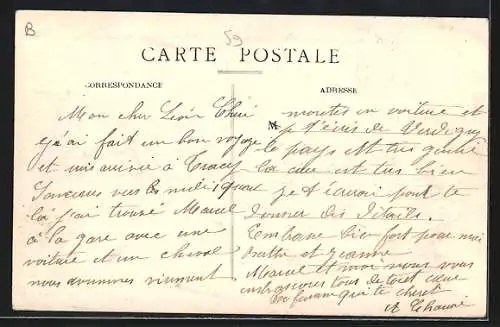 B
59
CARTE POSTALE
CORRESPONDANCE
ADRESSE
Mon cher Léon Chéri
j'ai fait un bon voyage
et suis arrivée à Tracy
Sancerre vers les midi quant
là j'ai trouvé Marcel
à la gare avec une
voiture et un cheval
nous sommes vivement
montés en voiture et
M
je t'écris de Verdigny
le pays et très
la cave et très bien
je t'écrirai pour te
donner des détails.
Embrasse bien fort pour moi
et Jeanne
Marcel et moi nous vous
embrassons tous de tout cœur
Ta femme qui te chérit